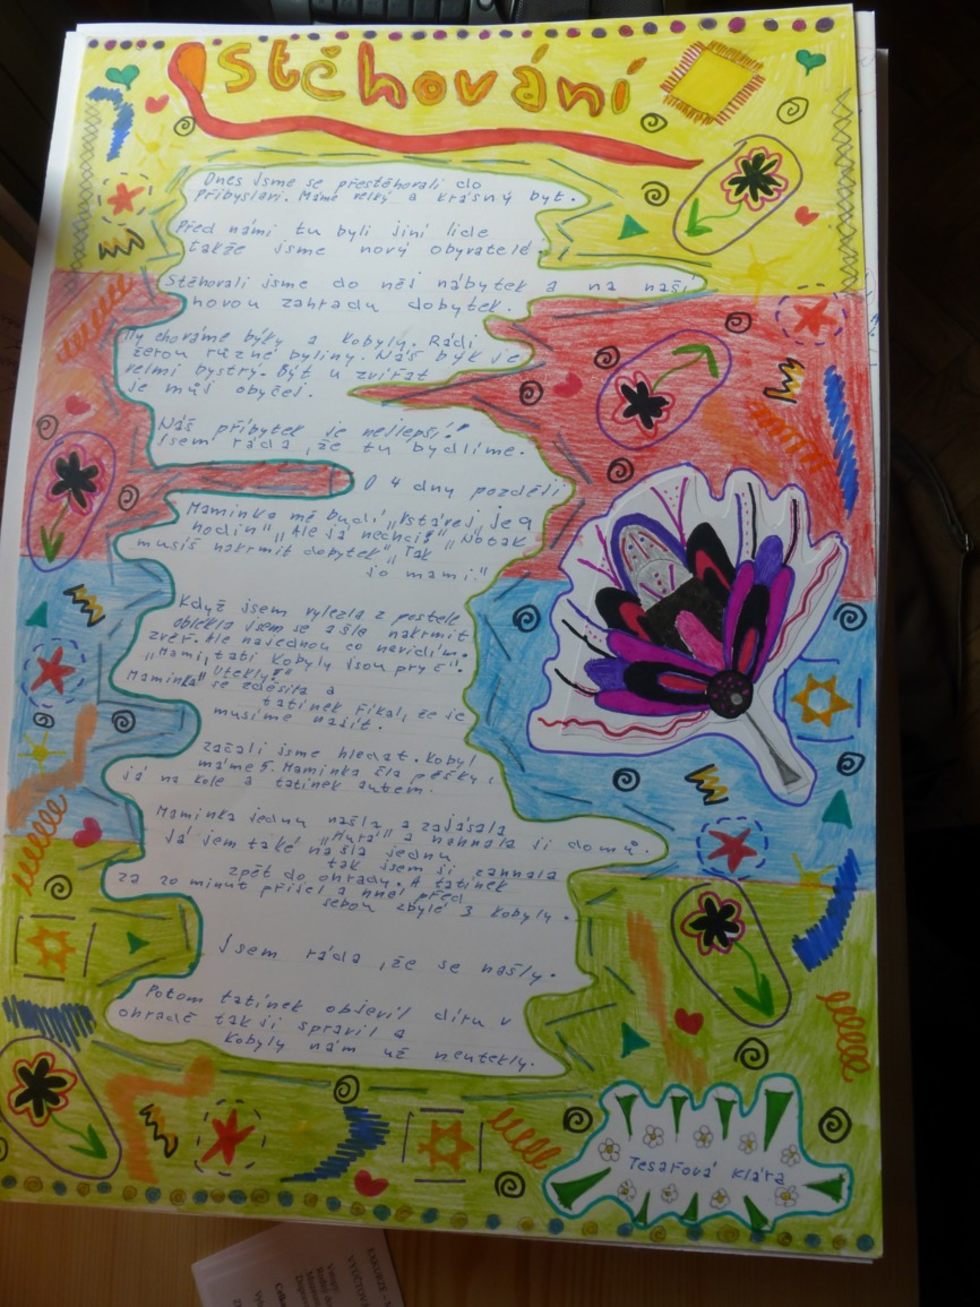 Stěhování
Dnes jsme se přestěhovali do
Přibyslavi. Máme velký a krásný byt.
Před námi tu byli jiní lidé
takže jsme nový obyvatelé.
Stěhovali jsme do něj nábytek a na naši
novou zahradu dobytek.
My chováme býky a kobyly. Rádi
žerou různé byliny. Náš býk je
velmi bystrý. Být u zvířat
je můj obyčej.
Náš příbytek je nejlepší!
Jsem ráda, že tu bydlíme.
O 4 dny později
Maminka mě budí „Vstávej, je 9
hodin" „Ale já nechci!" „No tak
musíš nakrmit dobytek" „Tak
jo mami!"
Když jsem vylezla z postele
oblékla jsem se a šla nakrmit
zvěř. Ale najednou co nevidím.
„Mami, tati kobyly jsou pryč".
„Utekly!"
Maminka se zděsila a
tatínek říkal, že je
musíme najít.
Začali jsme hledat. Kobyl
máme 5. Maminka šla pěšky,
já na kole a tatínek autem.
Maminka jednu našla a zajásala
„Hurá" a nahnala ji domů.
Já jem také našla jednu
tak jsem ji zahnala
zpět do ohrady. A tatínek
za 20 minut přišel a hnal před
sebou zbylé 3 kobyly.
Jsem ráda, že se našly.
Potom tatínek objevil díru v
ohradě tak ji spravil a
kobyly nám už neutekly.
Tesařová Klára